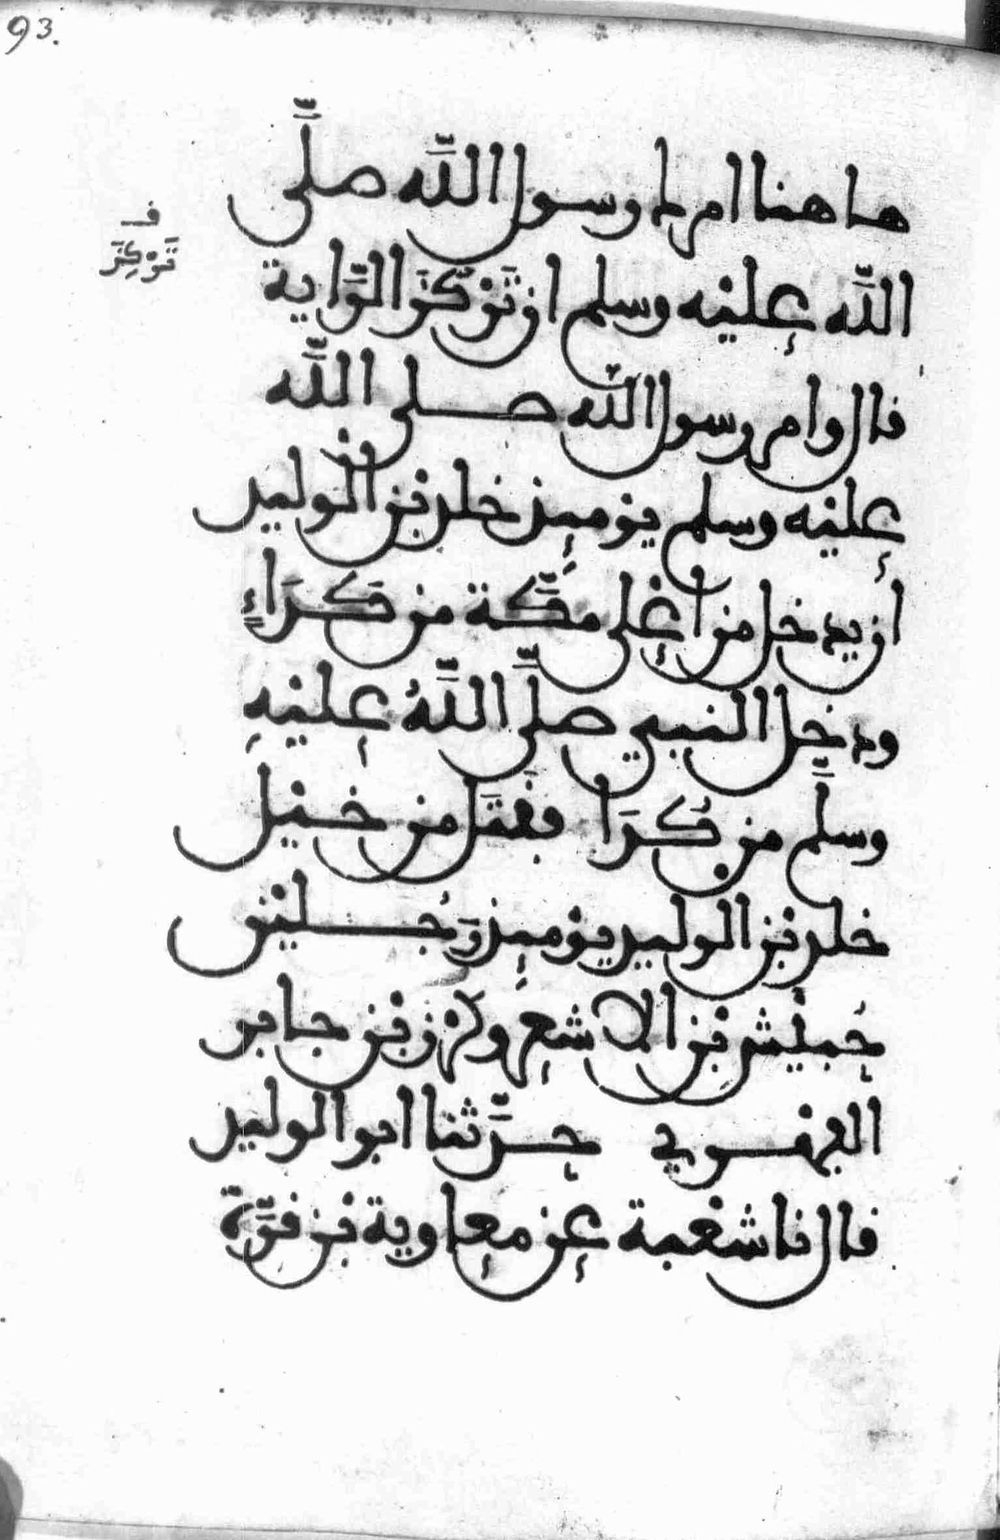 93.
هاهنا امرك رسول اللَّه صلَّى
ف
تَرْكِزَ
اللَّه عليْه وسلم ان تَرْكُزَ الرَّاية
قال وامر رسول اللَّه صلى اللَّه
عليْه وسلم يوْميِذ خلد بْن الوليد
ان يدخل من اعْلى مكَّة من كَدَاءٍ
ودخل النبي صلَّى اللَّهُ عليْهِ
وسلَّم من كُدَا فقُتِل من خيْل
خلد بْن الوليد يوْميِذ رَجُليْن
حُبيْش بْن الاشعر وكرْز بْن جابر
الفهْري حدَّثنا ابو الوليد
قال نا شعْبة عن معاوية بْن قرَّة